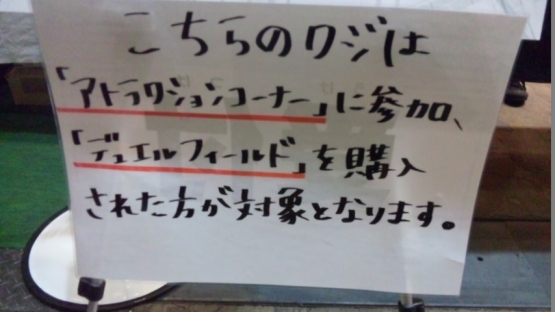 こちらのクジは
「アトラクションコーナー」に参加、
「デュエルフィールド」を購入
された方が対象となります。